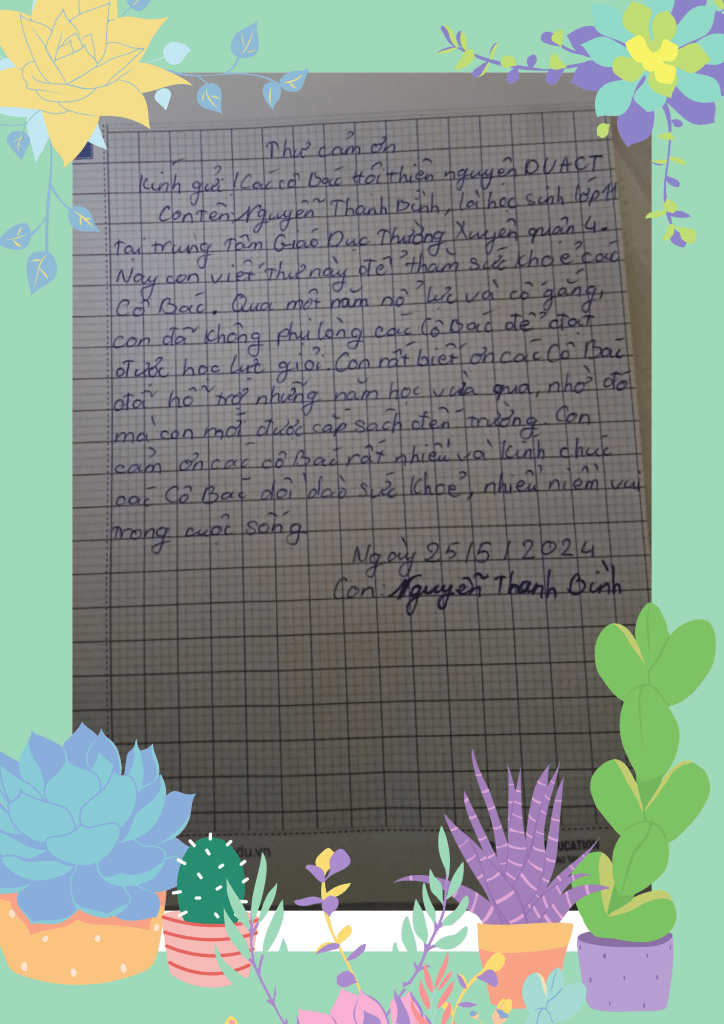 Thư cảm ơn
Kính gửi! Các cô Bác Hội thiện nguyện DVACT
Con tên Nguyễn Thanh Bình, là học sinh lớp 11
tại trung tâm Giáo Dục Thường Xuyên quận 4.
Nay con viết thư này để thăm sức khoẻ các
Cô Bác. Qua một năm nổ lực và cố gắng,
con đã không phụ lòng các Cô Bác để đạt
được học lực giỏi. Con rất biết ơn các Cô Bác
đã hỗ trợ những năm học vừa qua, nhờ đó
mà con mới được cắp sách đến trường. Con
cảm ơn các cô Bác rất nhiều và kính chúc
các Cô Bác dồi dào sức khoẻ, nhiều niềm vui
trong cuộc sống
Ngày 25/5/2024
Con: Nguyễn Thanh Bình
du.vn
UCATION